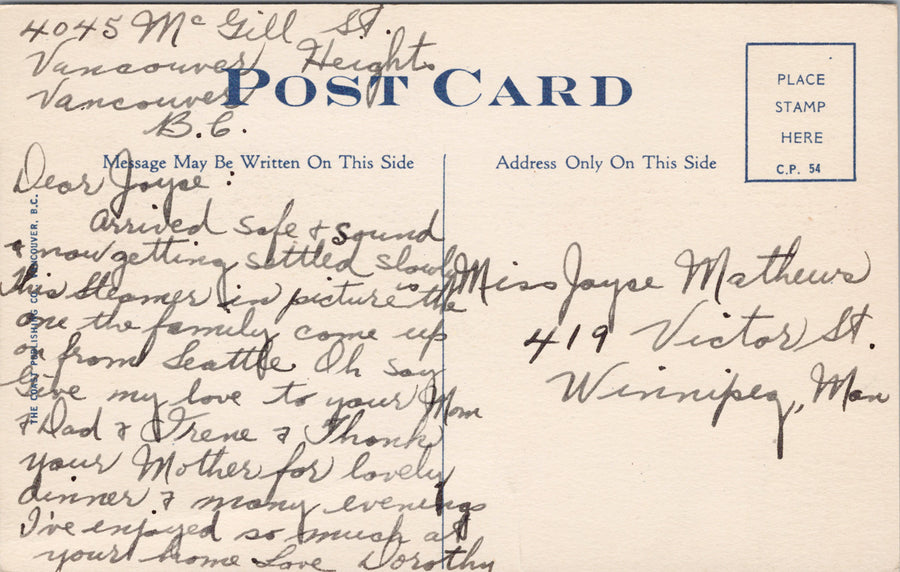 4045 Mc Gill St.
Vancouver Heights
Vancouver
B.C.
POST CARD
PLACE
STAMP
HERE
C.P. 54
Message May Be Written On This Side
Address Only On This Side
Dear Joyse:
Arrived safe & sound
& now getting settled slowly
This steamer in picture is the
one the family come up
on from Seattle Oh say
Give my love to your Mom
& Dad & Irene & Thank
your Mother for lovely
dinner & many evenings
I've enjoyed so much at
your home Love Dorothy
Miss Joyse Mathews
419 Victor St.
Winnipeg, Man
THE COAST PUBLISHING CO., VANCOUVER, B.C.